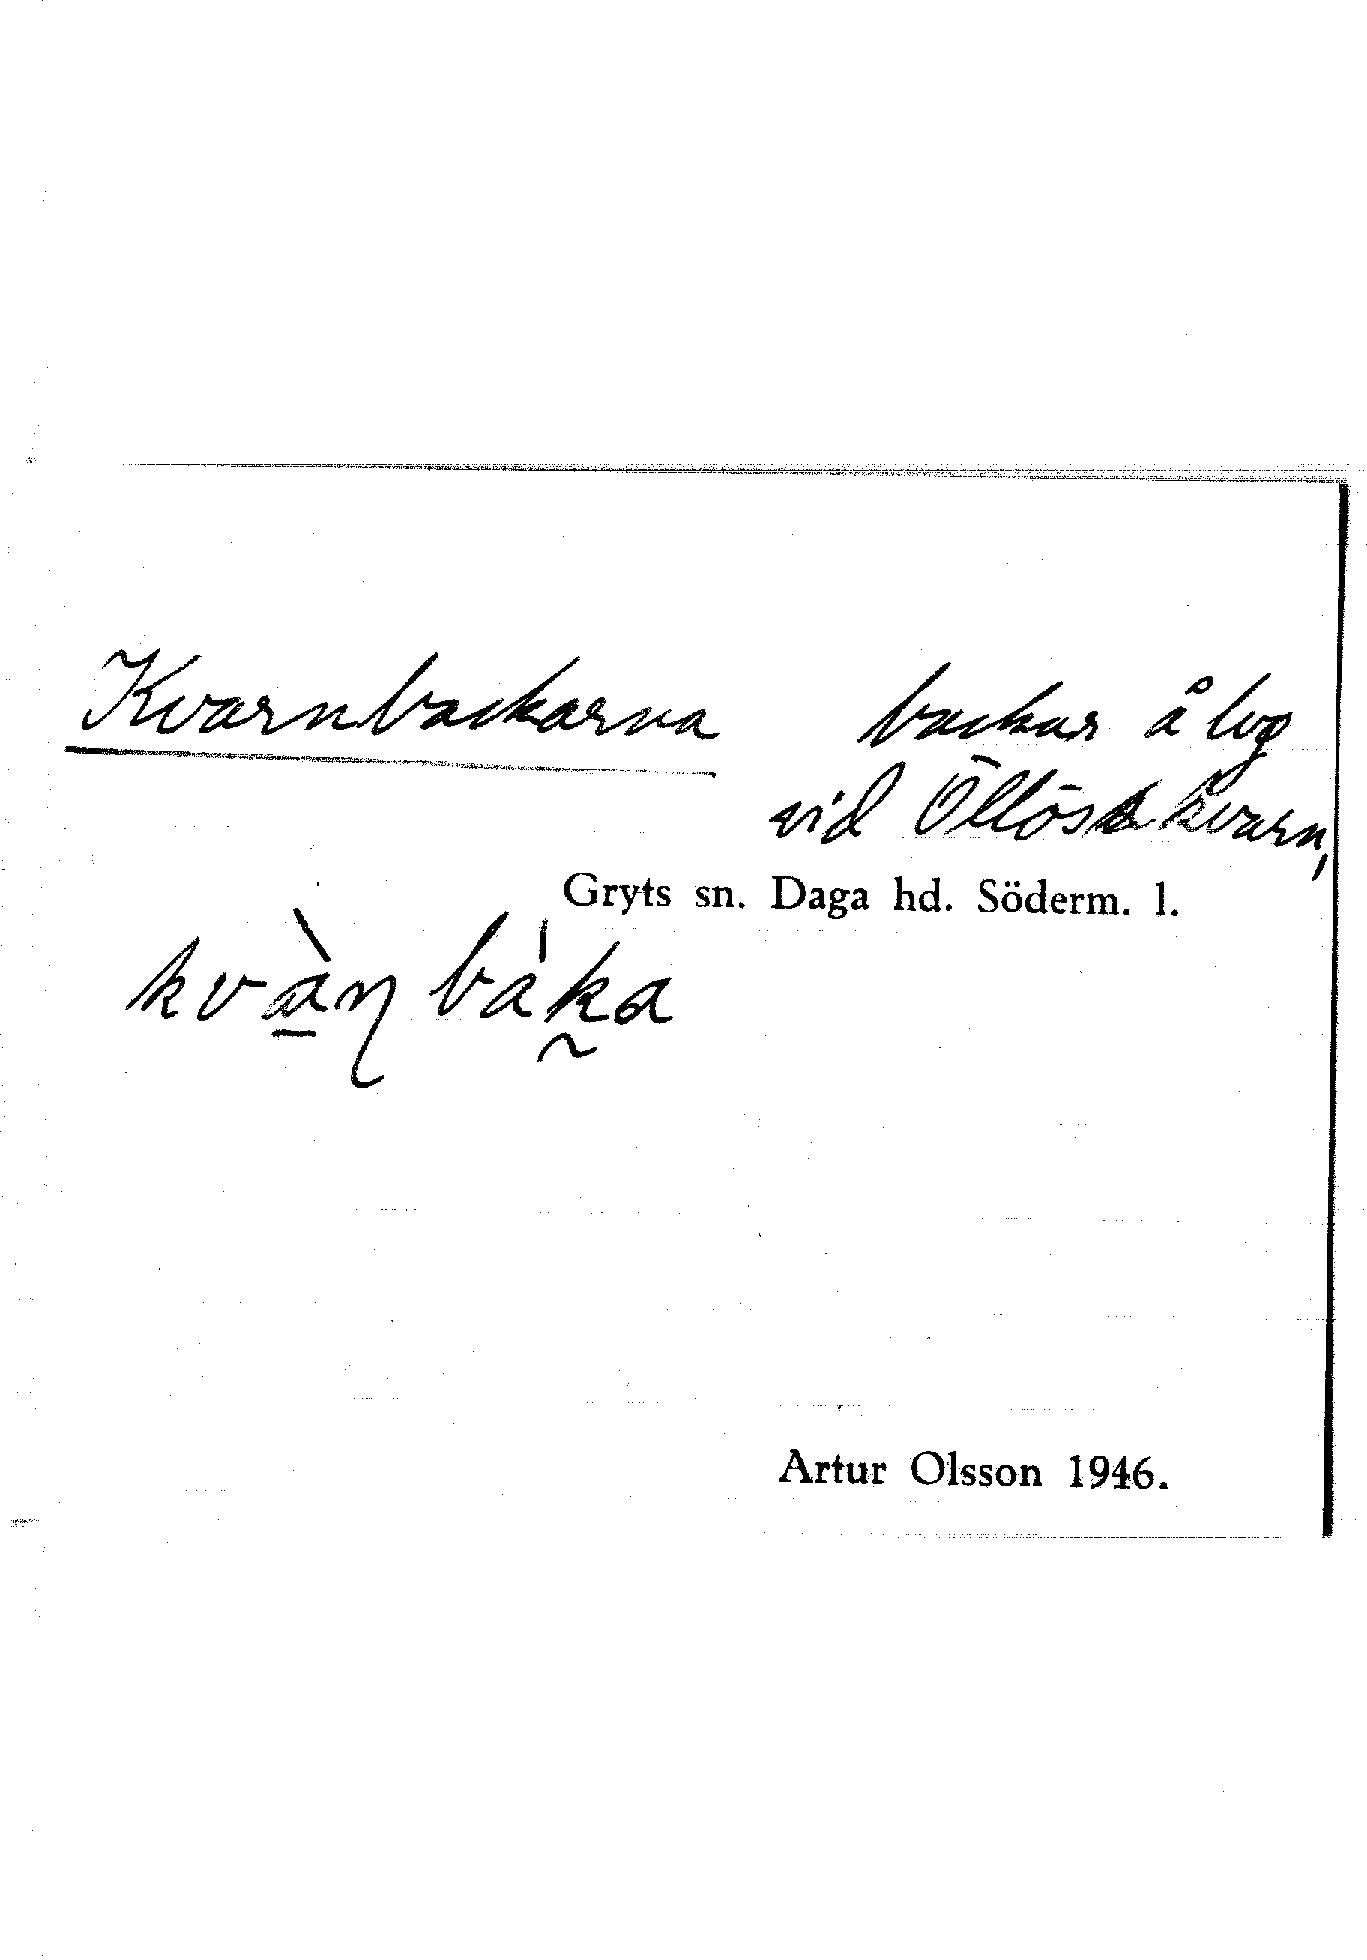 Kvarnbackarna backar å lvg
vid Öllösa kvarn,
Gryts sn. Daga hd. Söderm. l.
kvànbáka
Artur Olsson 1946.